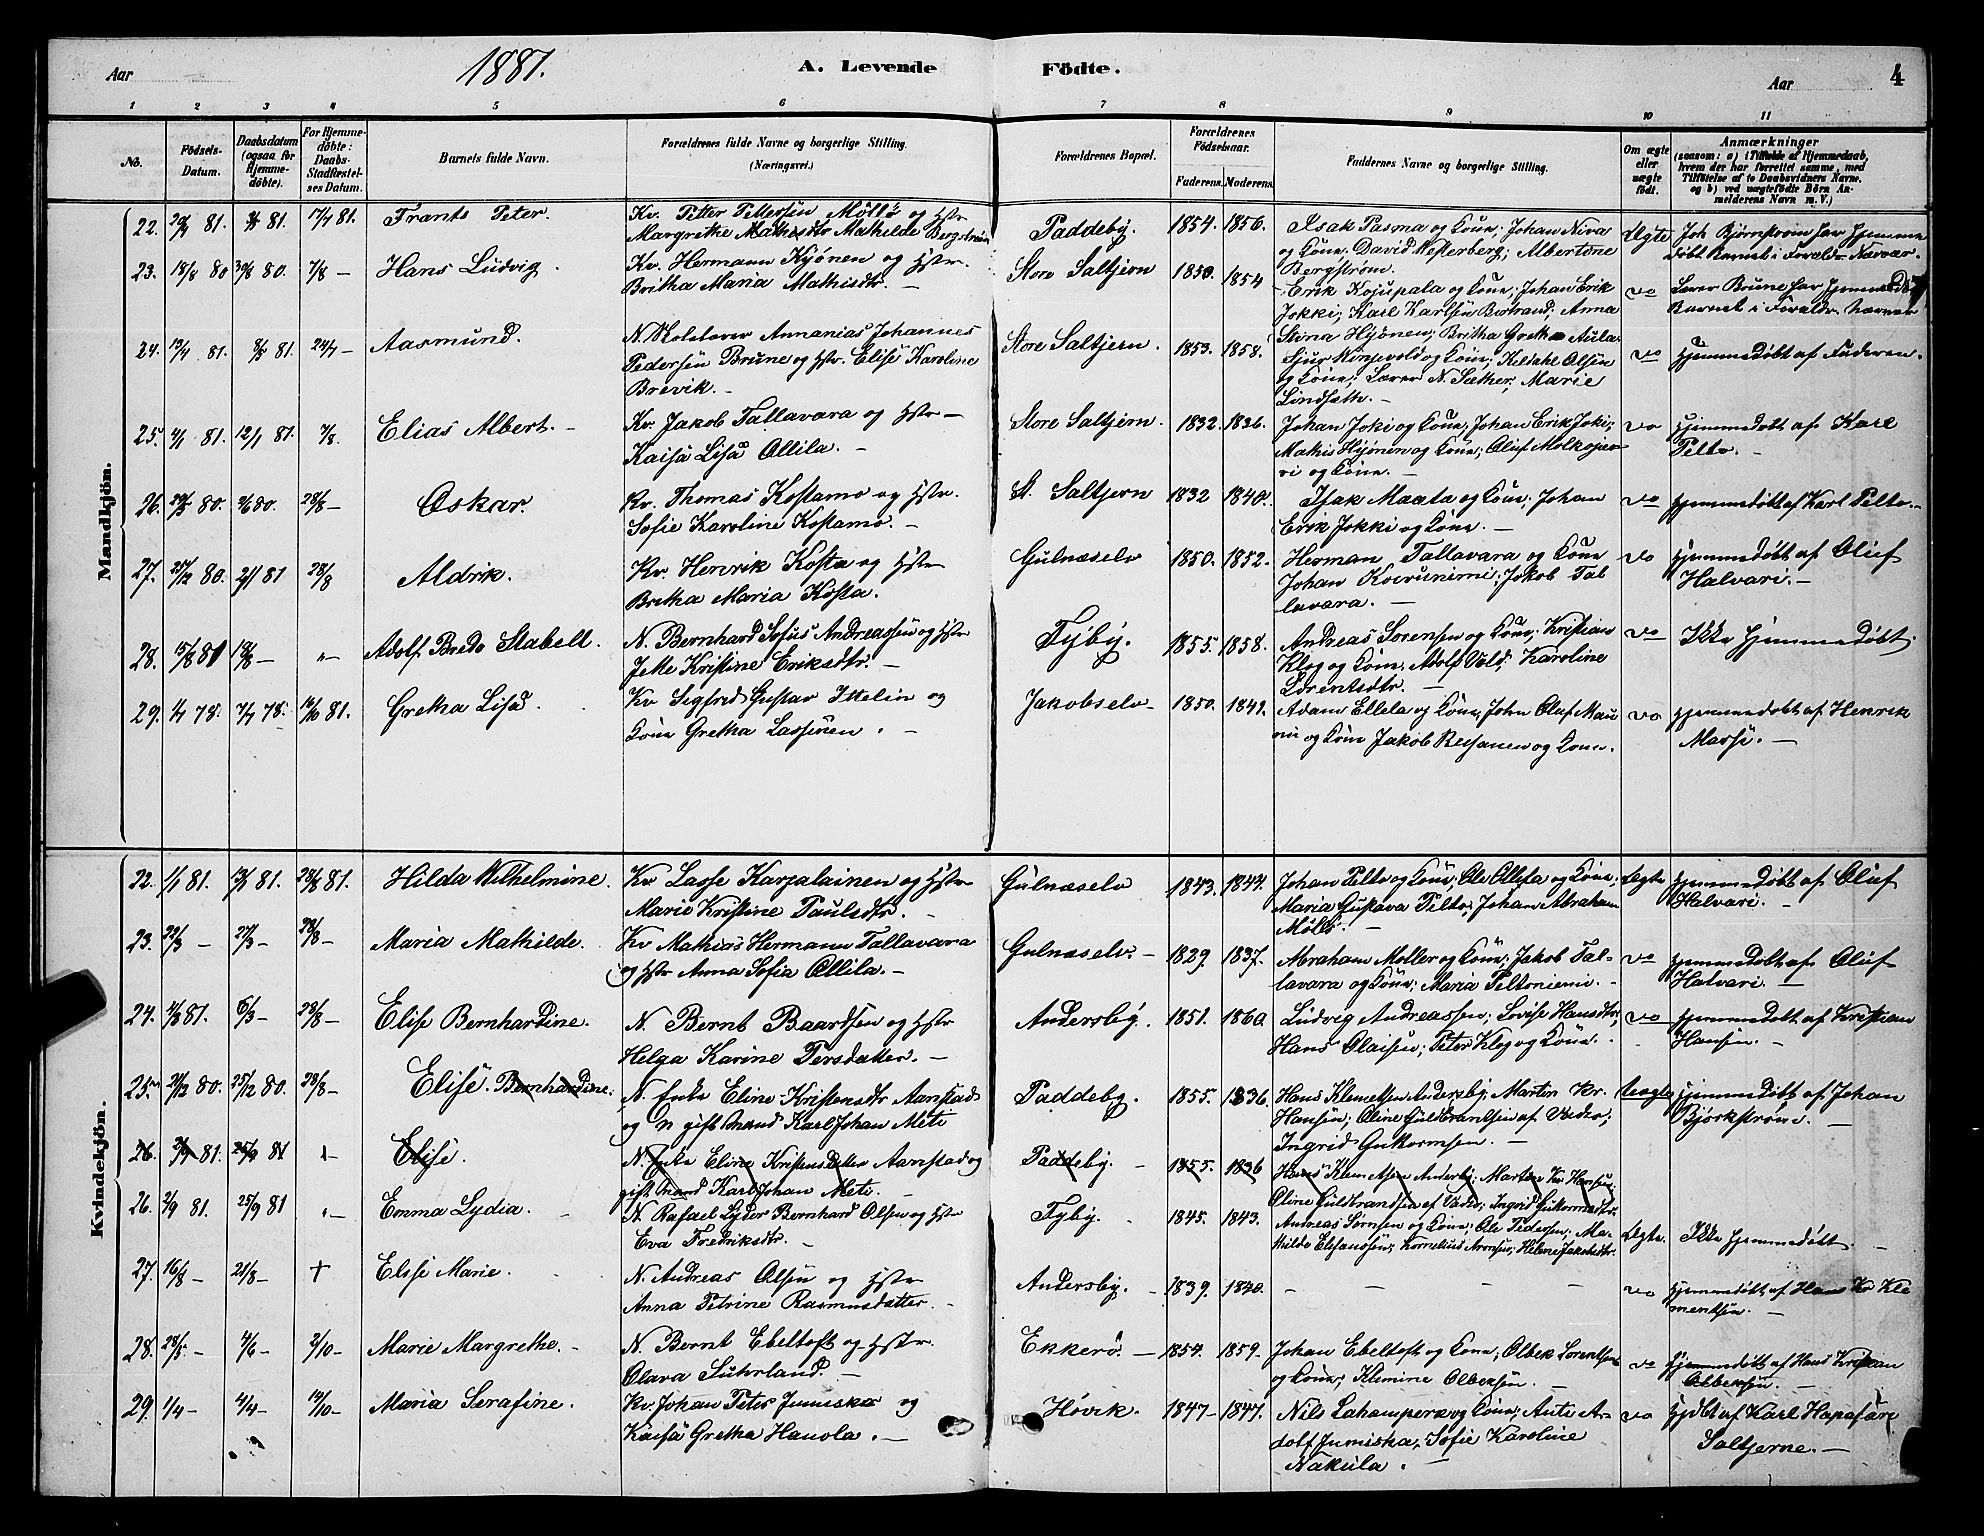 Aar 1881. A. Levende Födte. Aar 4
1 2 3 4 5 6 7 8 9 10 11
No. Födsels-Datum. Daabsdatum (ogsaa for Hjemmedöbte). For Hjemmedöbte: Daabs-Stadfæstelses Datum. Barnets fulde Navn. Forældrenes fulde Navne og borgerlige Stilling. (Næringsvei.) Forældrenes Bopæl. Forældrenes Födselsaar. Faderens. Moderens. Faddernes Navne og borgerlige Stilling. Om ægte eller uægte födt. Anmærkninger (saasom: a) i Tilfælde af Hjemmedaab, hvem der har forrettet samme, med Tilföielse af to Daabsvidners Navne, og b) ved uægtefödte Börn Anmelderens Navn m. V.)
Mandkjön.
22. 81. 81. 17/7 81. Frants Peter. Kv. Petter Pettersen Möllö og Hstr Paddeby. 1854. 1856. Isak Pasma og Kone; Johan Niva Ægte Joh Bjørnstrøm har hjemme
Margrethe Mathisdtr Mathilde Bergström og Kone. David Westerberg; Albertine døbt Barnet i Foraldr. Nærvær.
Bergström.
23. 18/8 80 80. 7/8 – Hans Ludvig. Kv. Hermann Hjönen og Hstr. Store Saltjern 1850. 1854 Erik Kojupala og Kone; Johan Erik do Lærer Brune har hjemmedøbt
Britha Maria Mathisdtr. Jokki; Karl Karlsen Bertrand; Anna Barnet i Foraldr. Nærvær
Stina Hjönen; Britha Gretha Aula.
24. 81. 81. 24/7 – Aasmund. N. Skolelærer Annanias Johannes Store Saltjern. 1853. 1858. Sjur Kongsvold og Kone; Kildahl Olsen do hjemmedøbt af Faderen.
Pedersen Brune og Hstr. Elise Karoline og Kone; Lærer N. Sæther; Marie
Brevik. – Lindsæth. –
25. 4/1 81. 12/1 81. 7/8. Elias Albert. – Kv. Jakob Tallavara og Hstr – Store Saltjern. 1832. 1836. Johan Joki og Kone; Johan Erik Joki; do hjemmedøbt af Karl
Kaisa Lisa Ollila. – Mathis Hjönen og Kone; Oluf Molkojær Pelto. –
vi og Kone. –
26. 80. 80 28/8 – Oskar. Kv. Thomas Kostamo og Hstr. St. Saltjern 1832 1840. Isak Maata og Kone; Johan do hjemmedøbt af Karl Pelto. –
Sofie Karoline Kostamo. – Erik Jokki og Kone. –
27. 80. 2/1 81 28/8 Aldrik. Kv. Henrik Kosta og Hstr Gulnæselv 1850. 1852. Herman Tallavara og Kone do hjemmedøbt af Oluf
Bretha Maria Kosta. Johan Koivuniemi; Jakob Tal Halvari. –
lavara. –
28. 15/8 81 – „ – Adolf Bredo Stabell. N. Bernhard Sofus Andreassen og Hstr Fyby. 1855. 1858. Andreas Sorensen og Kone; Kristian do Ikke hjemmedøbt.
Jette Kristine Eriksdtr. – Klog og Kone; Adolf Vold; Karoline
Lorentsdtr. –
29. 1/7 78. 7/7 78. 16/10 81. Gretha Lisa. Kv Sigfred Gustav Ittelin og Jakobselv – 1850. 1841. Adam Ellela og Kone; John Oluf Mau do hjemmedøbt af Henrik
Kone Gretha Lassinen. – nu og Kone Jakob Reisanen og Kone. Massi. –
Kvindekjön.
22. 1/1 81. 81. 28/8 81. Hilda Wilhelmine. Kv Lasse Karjalainen og Hstr Gulnæselv 1843. 1844. Johan Pelto og Kone; Ole Ollila og Kone; Ægte hjemmedøbt af Oluf
Marie Kristine Paulsdtr. – Maria Gustava Pelto; Johan Abraham Halvari. –
Mölls. –
23. 22/3 – 27/3 – 28/8 – Maria Mathilde. Kv Mathias Hermann Tallavara Gulnæselv. – 1829. 1837. Abraham Moller og Kone; Jakob Tal- do hjemmedøbt af Oluf
og Hstr Anna Sofia Ollila. – lavara og Kone; Maria Peltoniemi. – Halvari. –
24. 81. 6/3 – 28/8 – Elise Bernhardine. N. Bernt Baardsen og Hstr Andersby. 1851. 1860 Ludvig Andreassen; Lovise Hansdtr; do hjemmedøbt af Kristian
Helga Karine Persdatter. – Hans Olaisen; Peter Klog og Kone. – Hansen. –
25. 21/12 80. 25/12 80. 28/8 – Elise. Bernhardine. N. Enke Eline Kristensdtr Aanstad Paddeby. 1855. 1836. Hans Klemetsen Andersby; Martin Kr. Uægte hjemmedøbt af Johan
og n gift mand Karl Johan Mete Hansen; Oline Guldbrantsen af Vadsø; Bjørkstrøm. –
Ingrid Gukormsen. –
26. 81. 25/9 81 Elise. N. Enke Eline Kristensdatter Aanstad og Paddeby. – 1855. 1836 Hans Klemetsen Anderby; Marten Kr Hansen;
gift mand Karl Johan Mete. – Oline Guldbrandsen af Vadsø; Ingrid Gukormsdtr.
26. 2/9 81. 25/9 81 „ – Emma Lydia. – N. Rafael Lyder Bernhard Olsen og Hstr Fyby. – 1845. 1843. Andreas Sörnsen og Kone; Ole Pedersen; Ma- Ægte. Ikke hjemmedöbt. –
Eva Fredriksdtr. – thilde Elisansen; Kornelius Aronsen; Helene Jakobsdtr.
27. 16/8 – 21/8 – † Elise Marie. N. Andreas Olsen og Hstr Andersby. – 1839. 1840. – – – do hjemmedøbt af Hans Kr Kle
Anna Petrine Rasmusdatter. – mentsen. –
28. 28/5 – 4/6 – 2/10 – Marie Margrethe. – N. Bernt Ebeltoft og Hstr. Ekkerö. – 1854. 1859. Johan Ebeltoft og Kone; Olbek Lorentsen do hjemmedøbt af Hans Kristian
Olava Suhrland. og Kone; Klemine Olbeksen. – Olbeksen. –
29. 1/4 – 4/4 – 19/10 – Maria Serafine. Kv. Johan Peter Jumiska og Hövik. 1847 – 1847. Nils Lahampera og Kone; Anti A- do Hjdbt af Karl Hapasare
Kaisa Gretha Hanola. – dolf Jumiska; Sofie Karoline Saltjerne. –
Nakula. –